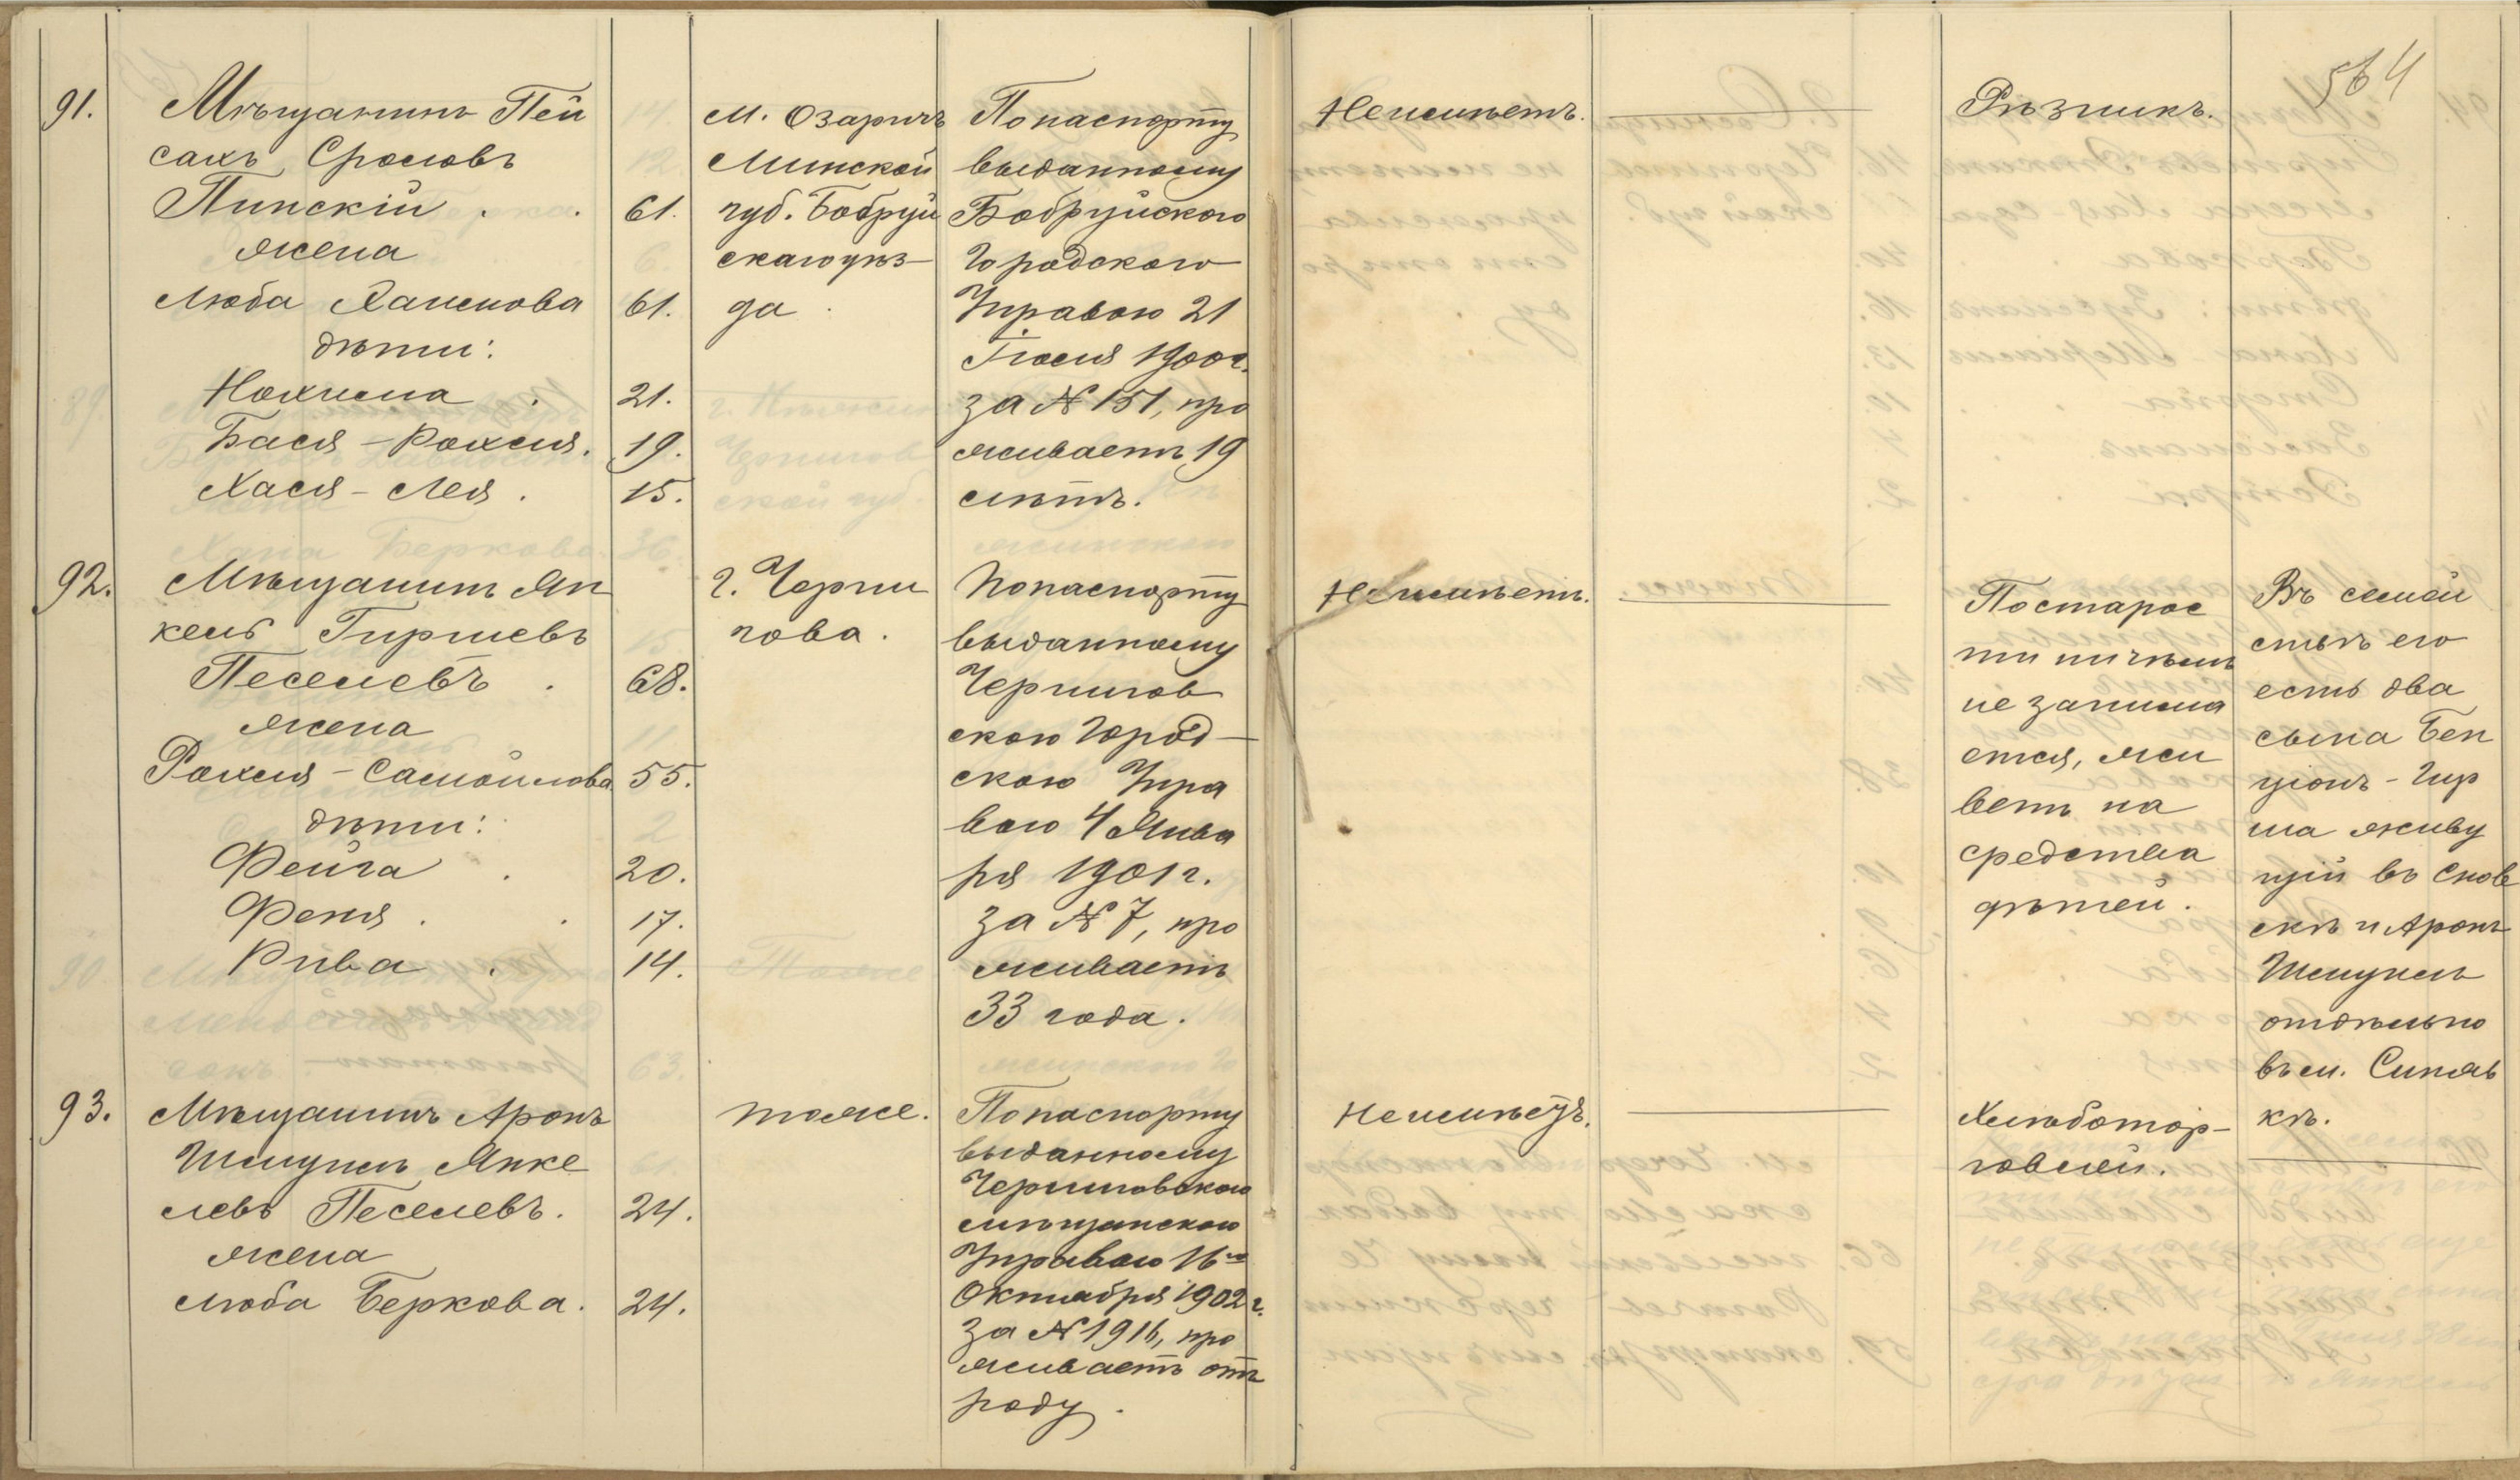 564
91.
Мѣщанинъ Пей
сахъ Сроловъ
Пинскій . .
61.
жена
Люба Хаимова
61.
дѣти:
Нохима .
21.
Бася - Рохля.
19.
Хася - Лея .
15.
м. Озаричъ
Минской
губ. Бобруй
скаго уѣз-
да .
По паспорту
выданному
Бобруйскою
Городскою
Управою 21
Іюля 1900 г.
за № 151, про
живаетъ 19
лѣтъ.
Не имѣетъ.
Рѣзникъ.
92.
Мѣщанинъ Ян
кель Гиршевъ
Песелевъ .
68.
жена
Рохля - Самойлова
55.
дѣти:
Фейга .
20.
Феня . .
17.
Рива .
14.
г. Черни
гова .
По паспорту
выданному
Чернигов
скою Город-
скою Упра
вою 4 Янва
ря 1901 г.
за № 7, про
живаетъ
33 года .
Не имѣетъ.
По старос
ти ничѣмъ
не занима
ется, жи
ветъ на
средства
дѣтей .
Въ семей
ствѣ его
есть два
сына Бен
ціонъ - Гир
ша живу
щій въ Снов
скѣ и Аронъ
Шмуилъ
отдѣльно
въ м. Синяв
кѣ.
93.
Мѣщанинъ Аронъ
Шмуилъ Янке
левъ Песелевъ.
24.
жена
Люба Беркова.
24.
тоже.
По паспорту
выданному
Черниговскою
мѣщанскою
Управою 16го
Октября 1902 г.
за № 1916, про
живаетъ отъ
роду .
Не имѣетъ.
Хлѣботор-
говлей.